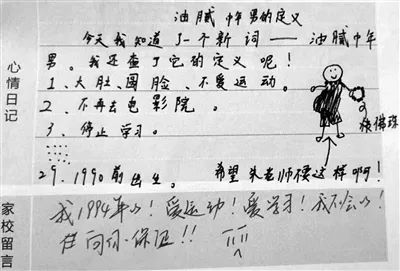 油腻中年男的定义
今天我知道了一个新词——油腻中年
男。我还查了它的定义呢！
1、大肚、圆脸、不爱运动。
2、不再去电影院。
3、停止学习。
29、1990前出生。
希望朱老师不要这样啊！
盘佛珠
心情日记
家校留言
我1994年的！爱运动！爱学习！我不会的！
向你保证！！